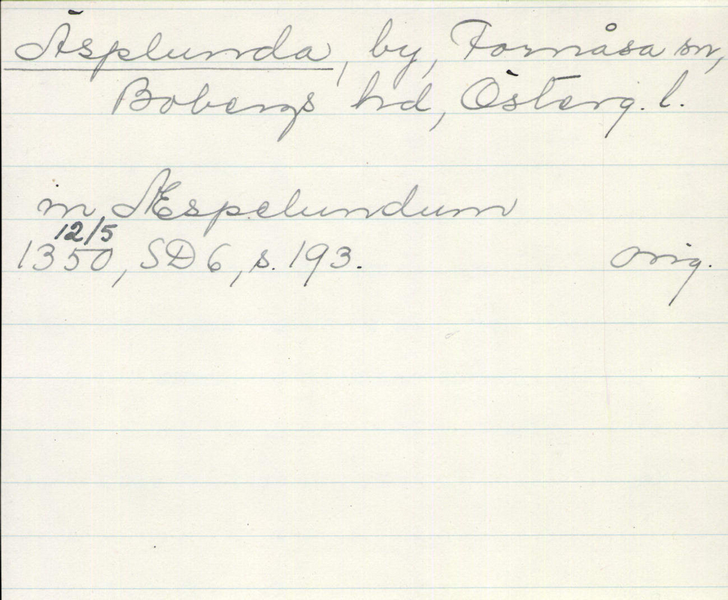 Äsplunda, by, Fornåsa sn,
Bobergs hd, Österg. l.
in Æspelundum
12/5
1350, SD 6, s. 193. orig.